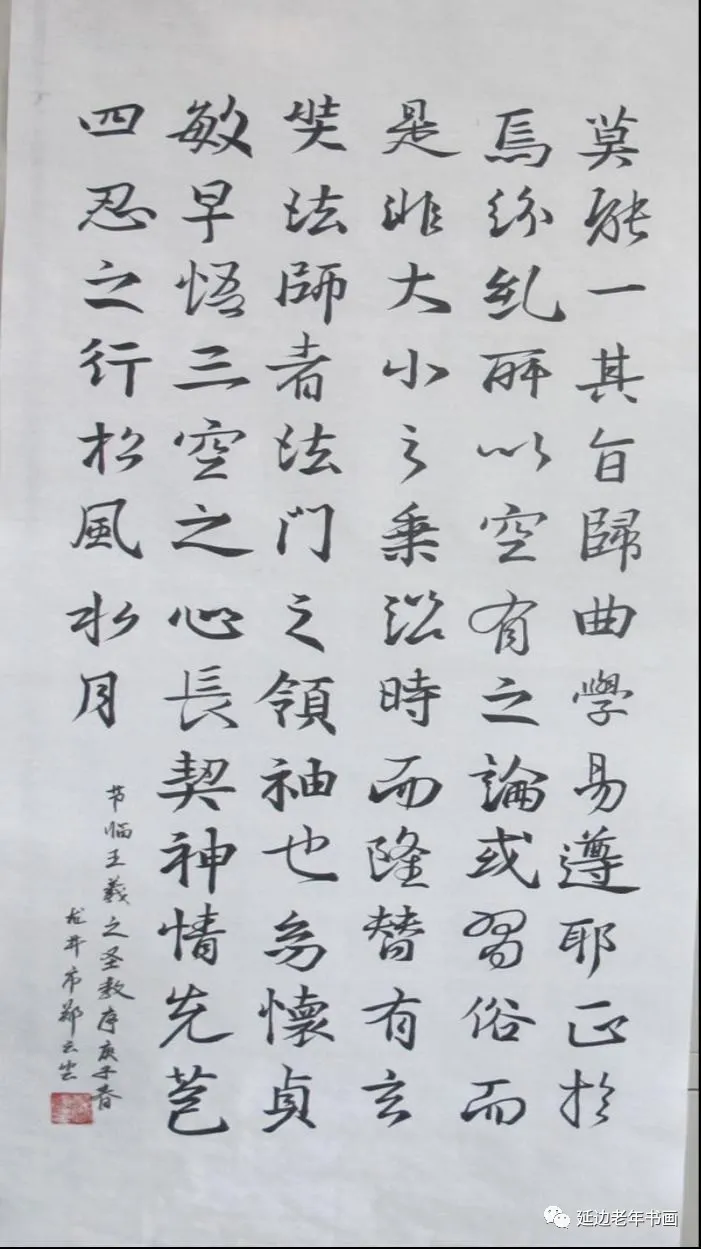 莫能一其旨歸曲學易遵耶正於
焉紛糺所以空有之論或習俗而
是非大小之乗㳂時而隆替有玄
奘法師者法門之領袖也㓜懷貞
敏早悟三空之心長契神情先苞
四忍之行松風水月
节临王羲之圣教序庚子春
龙井市郑云
延边老年书画